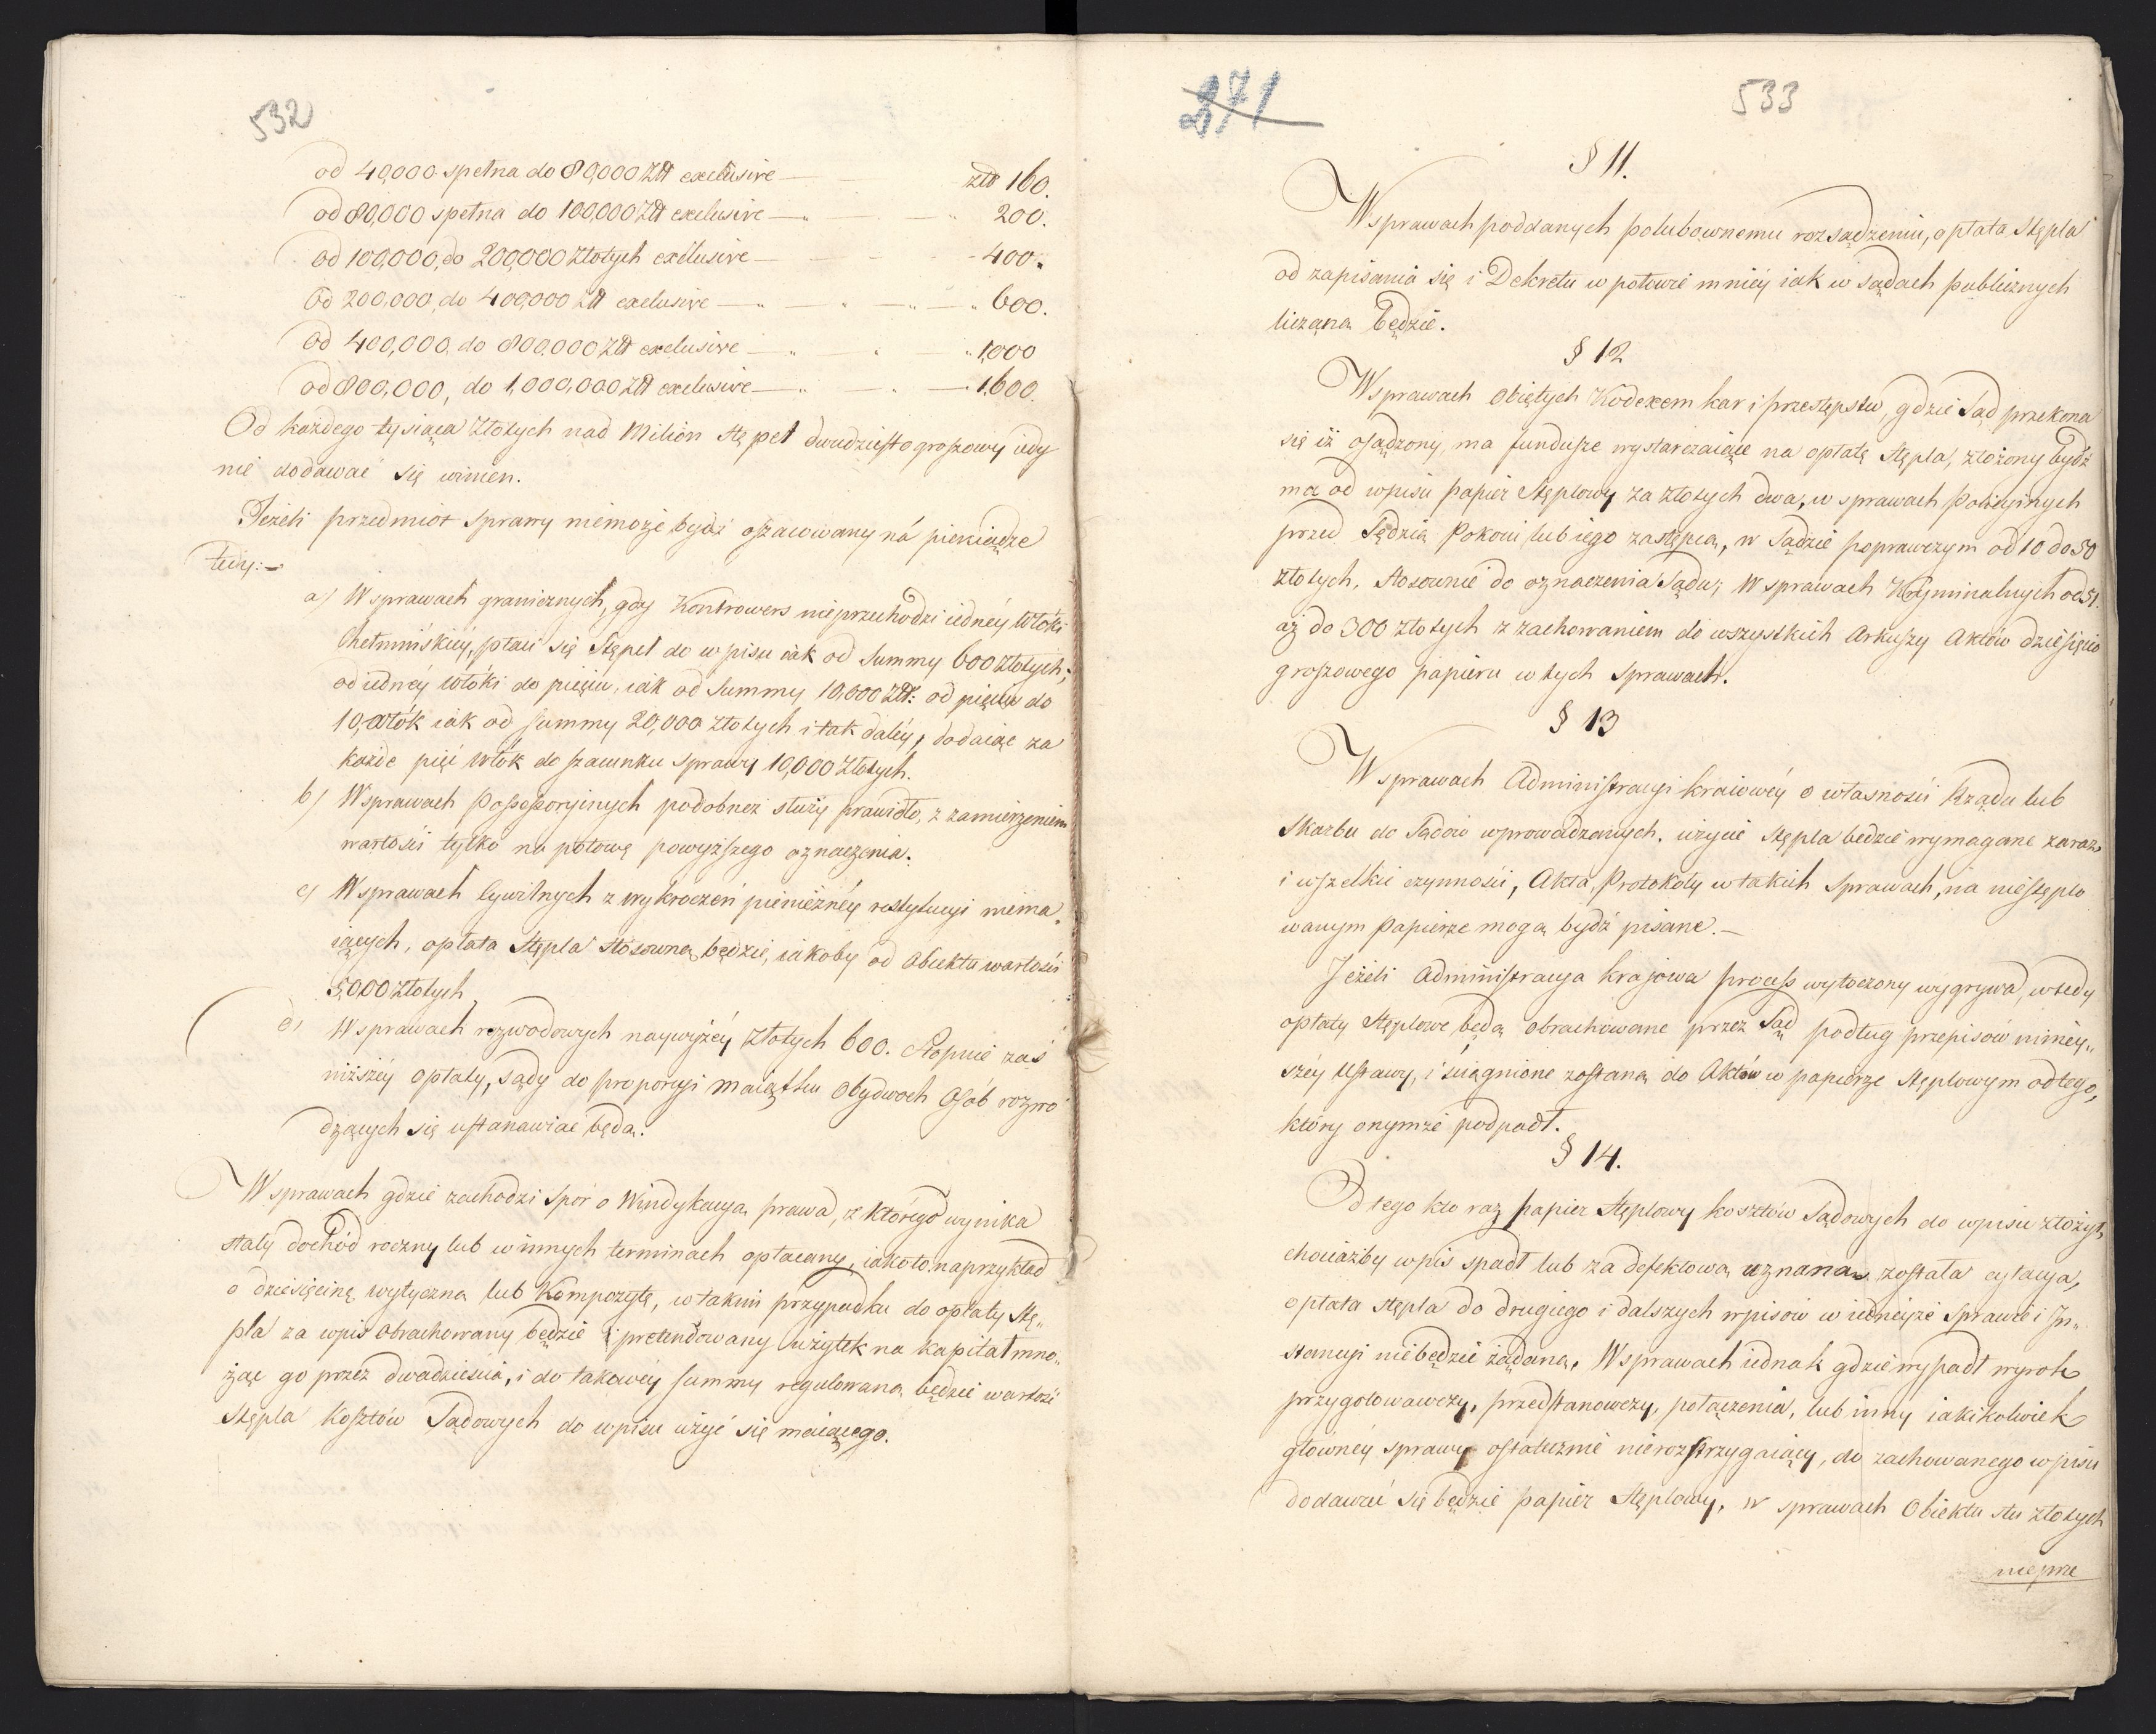 532
od 40,000 spełna do 80,000 Złł exclusive — złł 160.
od 80,000 spełna do 100,000 Złł exclusive — " — " 200.
od 100,000, do 200,000 Złotych exclusive — - 400 "
Od 200,000, do 400,000 Złł exclusive — " — " — " — " 600.
Od 400,000, do 800,000 Złł exclusive — " " " 1,000
od 800,000, do 1,000,000 Złł exclusive — " — " — 1,600.
Od każdego tysiąca Złotych nad Milion stępel dwudziesto groszowy iedy
nie dodawać się winien.
Jeżeli przedmiot sprawy niemoże bydź oszacowany na pieniądze
tedy: —
a) W sprawach granicznych, gdy Kontrowers nieprzechodzi iednéy Włóki
Chełmińskiéy, płaci się Stępel do wpisu iak od Summy 600 Złotych;
od iednéy Włóki do pięciu, iak od Summy 10,000 Złł: od pięciu do
10, Włók iak od summy 20,000 Złotych i tak daléy, dodaiąc za
każde pięć Włók do szacunku sprawy 10,000 Złotych.
b) W sprawach Possessoryinych podobneż służy prawidło, z zamierzeniem
wartości tylko na połowę powyższego oznaczenia.
c) W sprawach Cywilnych z wykroczeń pieniężnéy restytucyi niema„
iących, opłata Stępla stosowną będzie, iakoby od Obiektu wartości
5,000 Złotych
d) W sprawach rozwodowych naywyżéy Złotych 600. Stopnie zaś
niższéy opłaty, sądy do proporcyi maiątku Obydwoch Osób rozwo
dzących się ustanawiać będą.
W sprawach gdzie zachodzi Spór o Windykacyą prawa, z którego wynika
stały dochód roczny lub w innych terminach opłacany, iakoto naprzykład
o dziesięcinę wytyczną lub Kompozytę, w takim przypadku do opłaty Stę„
pla za wpis obrachowany będzie pretendowany użytek na kapitał mno„
żąc go przez dwadzieścia, i do takowéy summy regulowana będzie wartość
Stępla Kosztów Sądowych do wpisu użyć się maiącego.
271
533
§ 11.
W sprawach poddanych polubownemu rozsądzeniu, opłata Stępla
od zapisania się i Dekretu w połowie mniéy iak w Sądach publicznych
liczaną będzie.
§ 12
W sprawach Obiętych Kodexem kar i przestępstw, gdzie Sąd przekona
się iż osądzony, ma fundusze wystarczaiące na opłatę Stępla, złożony bydź
ma od wpisu papier Stęplowy za złotych dwa, w sprawach Policyinych
przed Sędzią Pokoiu lub iego zastępcą, w Sądzie poprawczym od 10 do 50
złotych, stosownie do oznaczenia Sądu; W sprawach Kryminalnych od 51.
aż do 300 złotych z zachowaniem do wszystkich Arkuszy Aktów dziesięcio
groszowego papieru w tych Sprawach.
§ 13
W sprawach Administracyi kraiowéy o własności Rządu lub
Skarbu do Sądów wprowadzanych, użycie stępla będzie wymagane zaraz
i wszelkie czynności, Akta, Protokoły w takich Sprawach, na niestęplo
wanym papierze mogą bydź pisane. —
Jeżeli Administracya krajowa process wytoczony wygrywa, wtedy
opłaty Stęplowe będą Obrachowane przez Sąd podług przepisów niniéy„
széy Ustawy, i ściągnione zostaną do Aktów w papierze Stęplowym od tego,
który onymże podpadł.
§ 14.
Od tego kto raz papier Stęplowy kosztów Sądowych do wpisu złożył,
chociażby wpis spadł lub za defektową uznana została cytacya,
opłata stępla do drugiego i dalszych wpisów w iednéyże Sprawie i In„
stancyi niebędzie żądaną. W sprawach iednak gdzie wypadł wyrok
przygotowawczy, przedstanowczy, połączenia, lub inny iakikolwiek
głównéy sprawy ostatecznie nierozstrzygaiący, do zachowanego wpisu
dodawać się będzie papier Stęplowy, w sprawach Obiektu stu złotych
nieprze